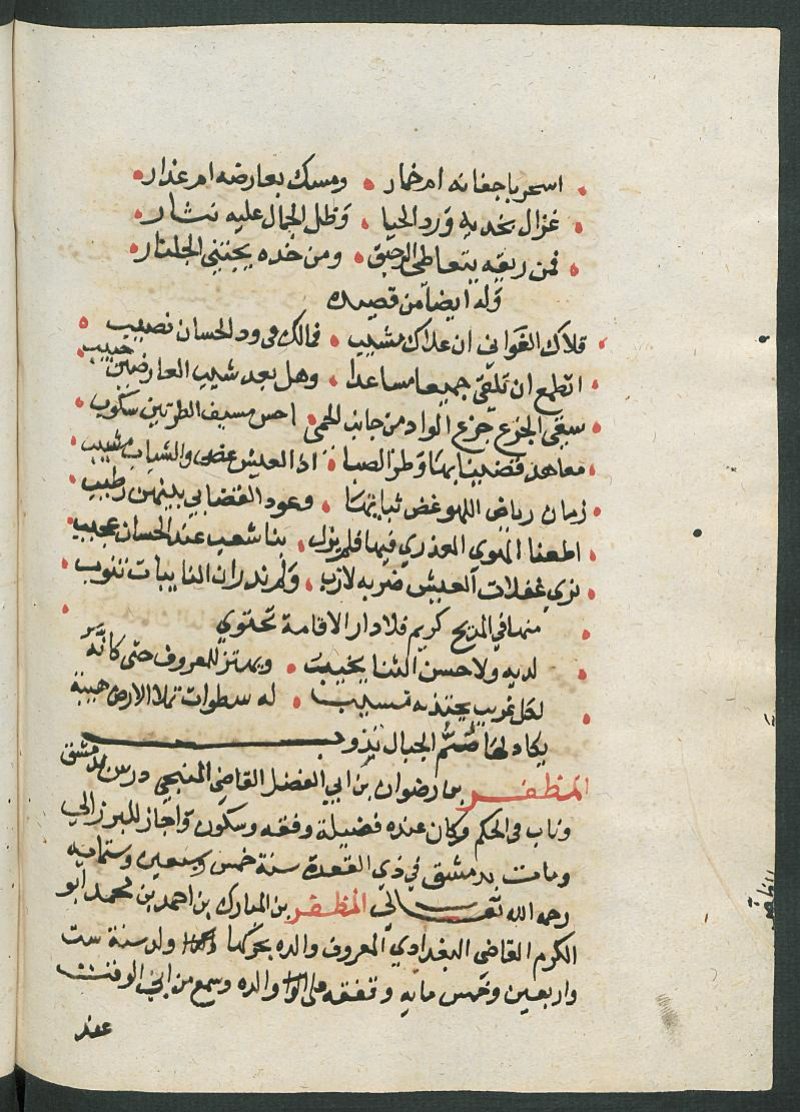 اسحر باجفانه ام خمار • ومسك بعارضه ام عذار
غزال بخديه ورد الحيا • وظل الجمال عليه نثار
فمن ريقه يتعاطى الرحيق • ومن خده يجتنى الجلنار
وله ايضا من قصيده
قلاك الغواني ان علاك مشيب • فمالك في ود الحسان نصيب
اتطمع ان تلقي جميعا مساعدا • وهل بعد شيب العارضين حبيب
سقى الجزع جزع الواد من جانب الحمى • احس مسيف الطرتين سكوب
معاهد قضينا بها وطر الصبا • اذا العيش غض والشباب قشيب
زمان رياض اللهو غض نباتها • وعود التصابي بينهن رطيب
اطعنا الهوى العذري فيها فلم يزل • بنا شعب عند الحسان عجيب
نري غفلات العيش ضربه لازب • ولم ندر ان النايبات تنوب
منها في المديح كريم فلا دار الاقامة تحتوي
لديه ولا حسن الثنا يخيب • ويهتز للمعروف حتى كانه
لكل غريب يجتذيه نسيب • له سطوات تملا الارض هيبة
يكاد لها صم الجبال يذوب
المظفر بن رضوان بن ابي الفضل القاضي المنبجي درس بدمشق
وناب في الحكم وكان عنده فضيلة وفقه وسكون واجاز للبرزالي
ومات بدمشق في ذي القعدة سنة خمس وسبعين وستمايه
رحمه الله تعالي المظفر بن المبارك بن احمد بن محمد ابو
الكرم القاضي البغدادي المعروف والده بحركها ولد سنة ست
واربعين وخمس مايه وتفقه على والده وسمع من ابي الوقت
عند